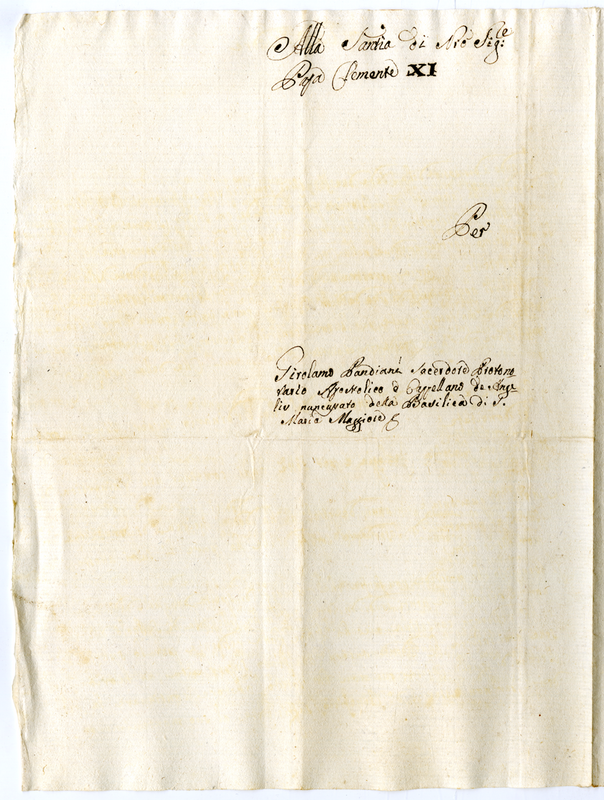 Alla Santtà di Nro Sigre
Papa Clemente XI
Per
Girolamo Pandiani Sacerdote Protono
tario Apostolico e Cappellano de Ange
lis nuncupato della Basilica di S.
Maria Maggiore